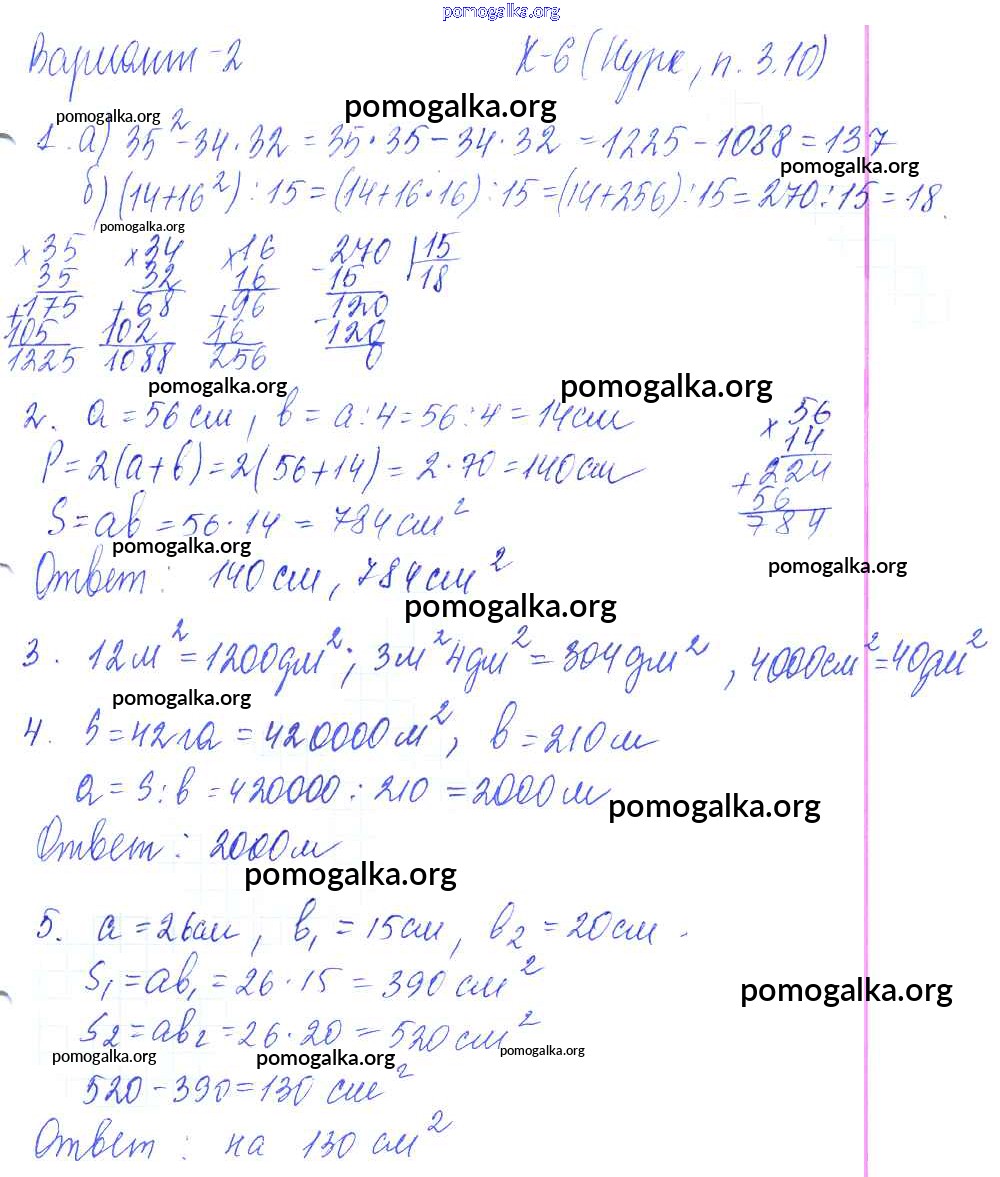 pomogalka.org
Вариант-2 К-6 (Нурк, п. 3.10)
pomogalka.org pomogalka.org
1. а) 35² - 34 · 32 = 35 · 35 - 34 · 32 = 1225 - 1088 = 137
pomogalka.org
б) (14+16²) : 15 = (14+16·16) : 15 = (14+256) : 15 = 270 : 15 = 18.
pomogalka.org
× 35 × 34 × 16 - 270 | 15
35 32 16 15 18
+ 175 + 68 + 96 - 120
105 102 16 120
1225 1088 256 0
pomogalka.org pomogalka.org
2. a = 56 см, в = a : 4 = 56 : 4 = 14 см × 56
14
P = 2(a+в) = 2(56+14) = 2 · 70 = 140 см + 224
56
S = aв = 56 · 14 = 784 см² 784
pomogalka.org pomogalka.org
Ответ: 140 см, 784 см²
pomogalka.org
3. 12 м² = 1200 дм²; 3 м² 4 дм² = 304 дм², 4000 см² = 40 дм²
pomogalka.org
4. S = 42 га = 420000 м², в = 210 м
a = S : в = 420000 : 210 = 2000 м
pomogalka.org
Ответ: 2000 м
pomogalka.org
5. a = 26 см, в₁ = 15 см, в₂ = 20 см.
S₁ = aв₁ = 26 · 15 = 390 см²
pomogalka.org
S₂ = aв₂ = 26 · 20 = 520 см²
pomogalka.org pomogalka.org pomogalka.org
520 - 390 = 130 см²
Ответ: на 130 см²